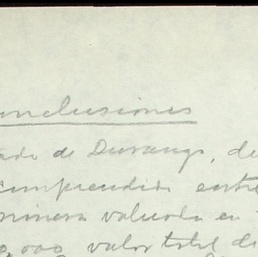 nclusiones
ado de Durango, de
comprendida entre
rimera valuada en
0,000 valor total de